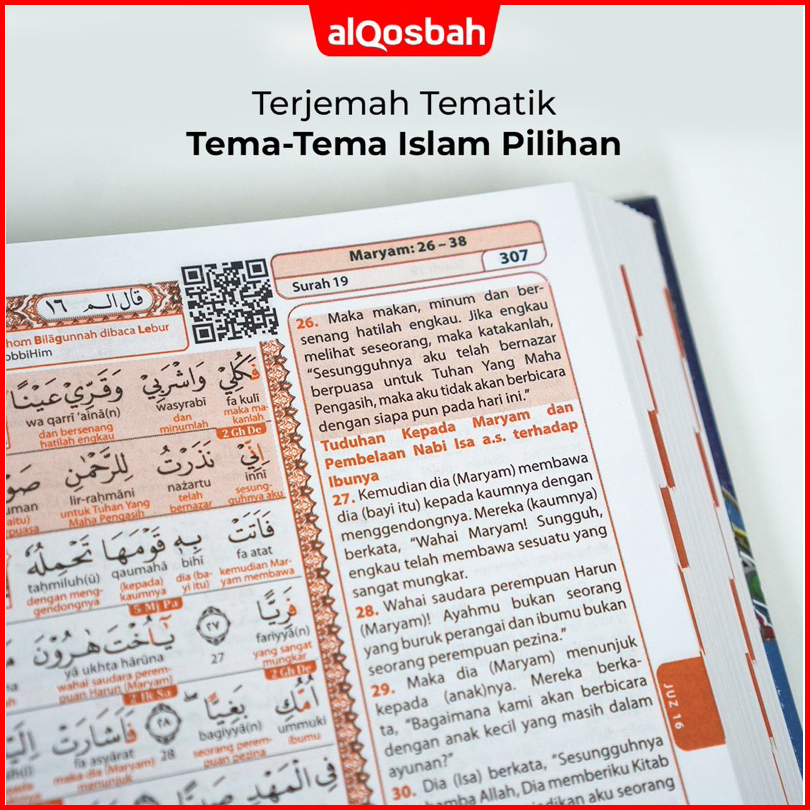 alQosbah
Terjemah Tematik
Tema-Tema Islam Pilihan
Maryam: 26 – 38
Surah 19
307
قال الم ١٦
hom Bilāgunnah dibaca Lebur
obbiHim
فَكُلِيْ وَاشْرَبِيْ وَقَرِّيْ عَيْنًا
wa qarrī ‘ainā(n) wasyrabī fa kulī
dan bersenang dan maka ma-
hatilah engkau minumlah kanlah
2 Gh De
اِنِّيْ نَذَرْتُ لِلرَّحْمٰنِ
lir-raḥmāni nażartu innī
untuk Tuhan Yang telah sesung-
Maha Pengasih bernazar guhnya aku
فَاَتَتْ بِهٖ قَوْمَهَا تَحْمِلُهٗ
taḥmiluh(ū) qaumahā bihī fa atat
dengan meng- (kepada) dia (ba- kemudian Mar-
gendongnya kaumnya yi itu) yam membawa
5 Mj Pa
فَرِيًّا ٢٧ يٰٓاُخْتَ هٰرُوْنَ
yā ukhta hārūna 27 fariyyā(n)
wahai saudara perem- yang sangat
puan Harun (Maryam) mungkar
2 Ik Sa
2 Gh De
اُمُّكِ بَغِيًّا ٢٨ فَاَشَارَتْ
fa asyārat 28 bagiyyā(n) ummuki
maka dia (Maryam) seorang perem- ibumu
menunjuk puan pezina
فِى الْمَهْدِ
26. Maka makan, minum dan ber-
senang hatilah engkau. Jika engkau
melihat seseorang, maka katakanlah,
“Sesungguhnya aku telah bernazar
berpuasa untuk Tuhan Yang Maha
Pengasih, maka aku tidak akan berbicara
dengan siapa pun pada hari ini.”
Tuduhan Kepada Maryam dan
Pembelaan Nabi Isa a.s. terhadap
Ibunya
27. Kemudian dia (Maryam) membawa
dia (bayi itu) kepada kaumnya dengan
menggendongnya. Mereka (kaumnya)
berkata, “Wahai Maryam! Sungguh,
engkau telah membawa sesuatu yang
sangat mungkar.
28. Wahai saudara perempuan Harun
(Maryam)! Ayahmu bukan seorang
yang buruk perangai dan ibumu bukan
seorang perempuan pezina.”
29. Maka dia (Maryam) menunjuk
kepada (anak)nya. Mereka berka-
ta, “Bagaimana kami akan berbicara
dengan anak kecil yang masih dalam
ayunan?”
30. Dia (Isa) berkata, “Sesungguhnya
hamba Allah, Dia memberiku Kitab
dikan aku seorang
JUZ 16